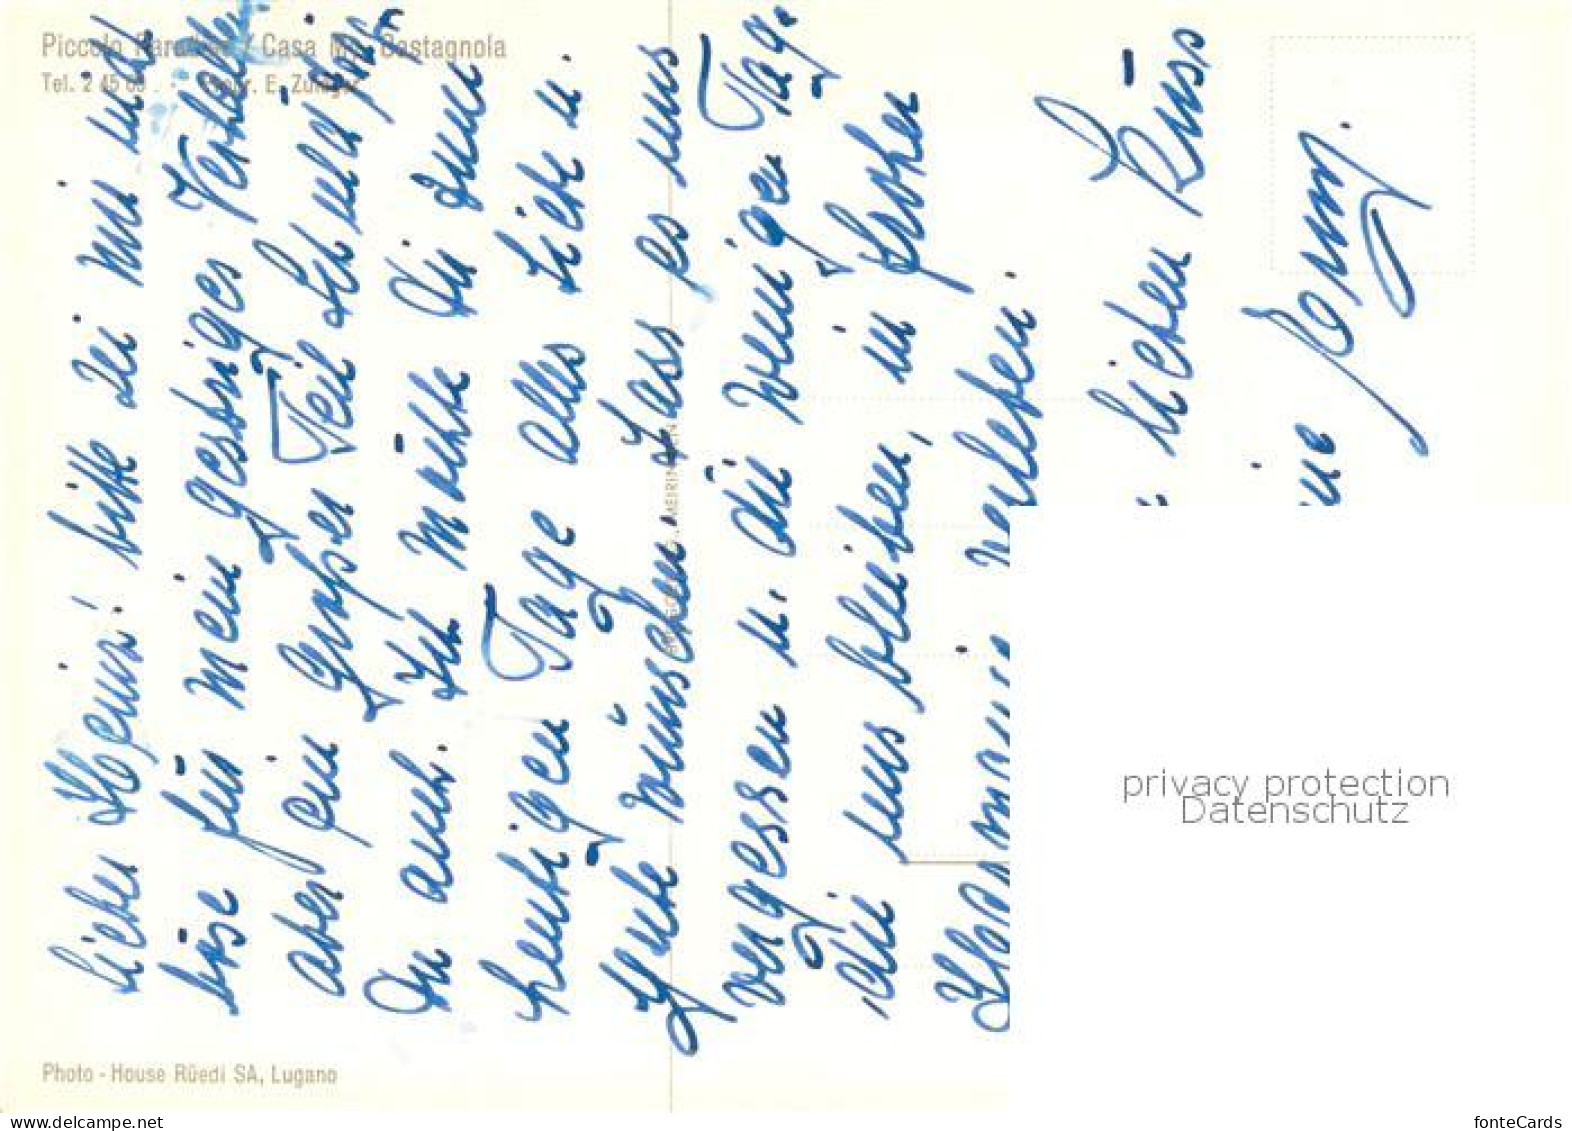 Piccolo Paradiso / Casa My, Castagnola
Tel. 2 45 69 E. Zulliger
Lieber Heinr! bitte sei mir nicht
böse für mein gestriges Verhalten
aber ein Großer Teil Schuld
Du auch. Ich möchte Dir zum
heutigen Tage alles Liebe u.
Gute wünschen. Lass es uns
vergessen u. die wenigen Tage
die uns bleiben, in froher
Harmonie verleben.
lieben Kuss
MEIRINGEN
Photo - House Rüedi SA, Lugano
privacy protection
Datenschutz
delcampe.net
fonteCards